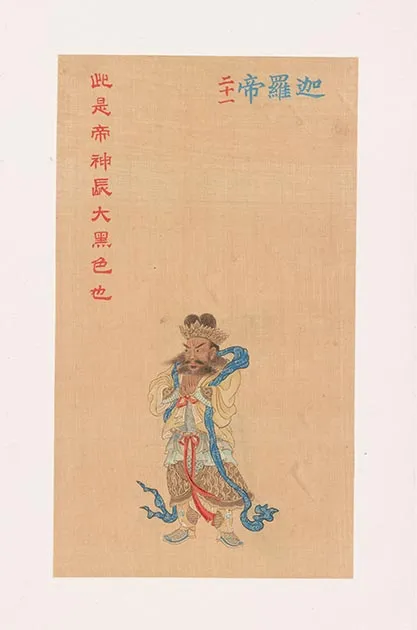 迦羅帝
二十一
此是帝神長大黑色也